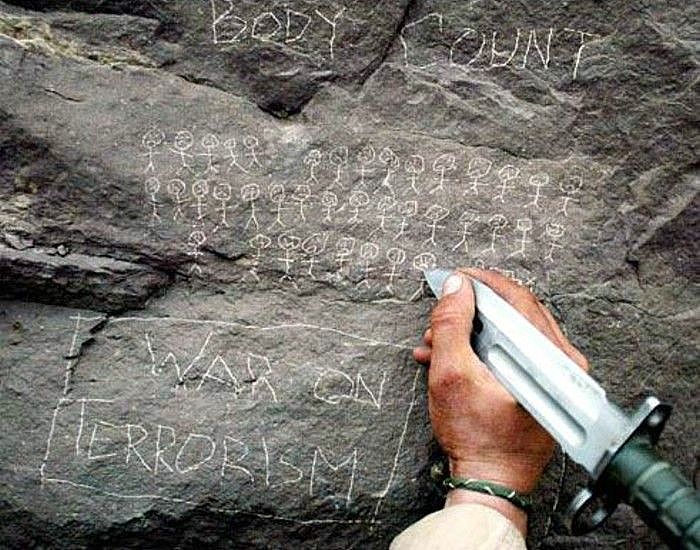 BODY COUNT
WAR ON
TERRORISM